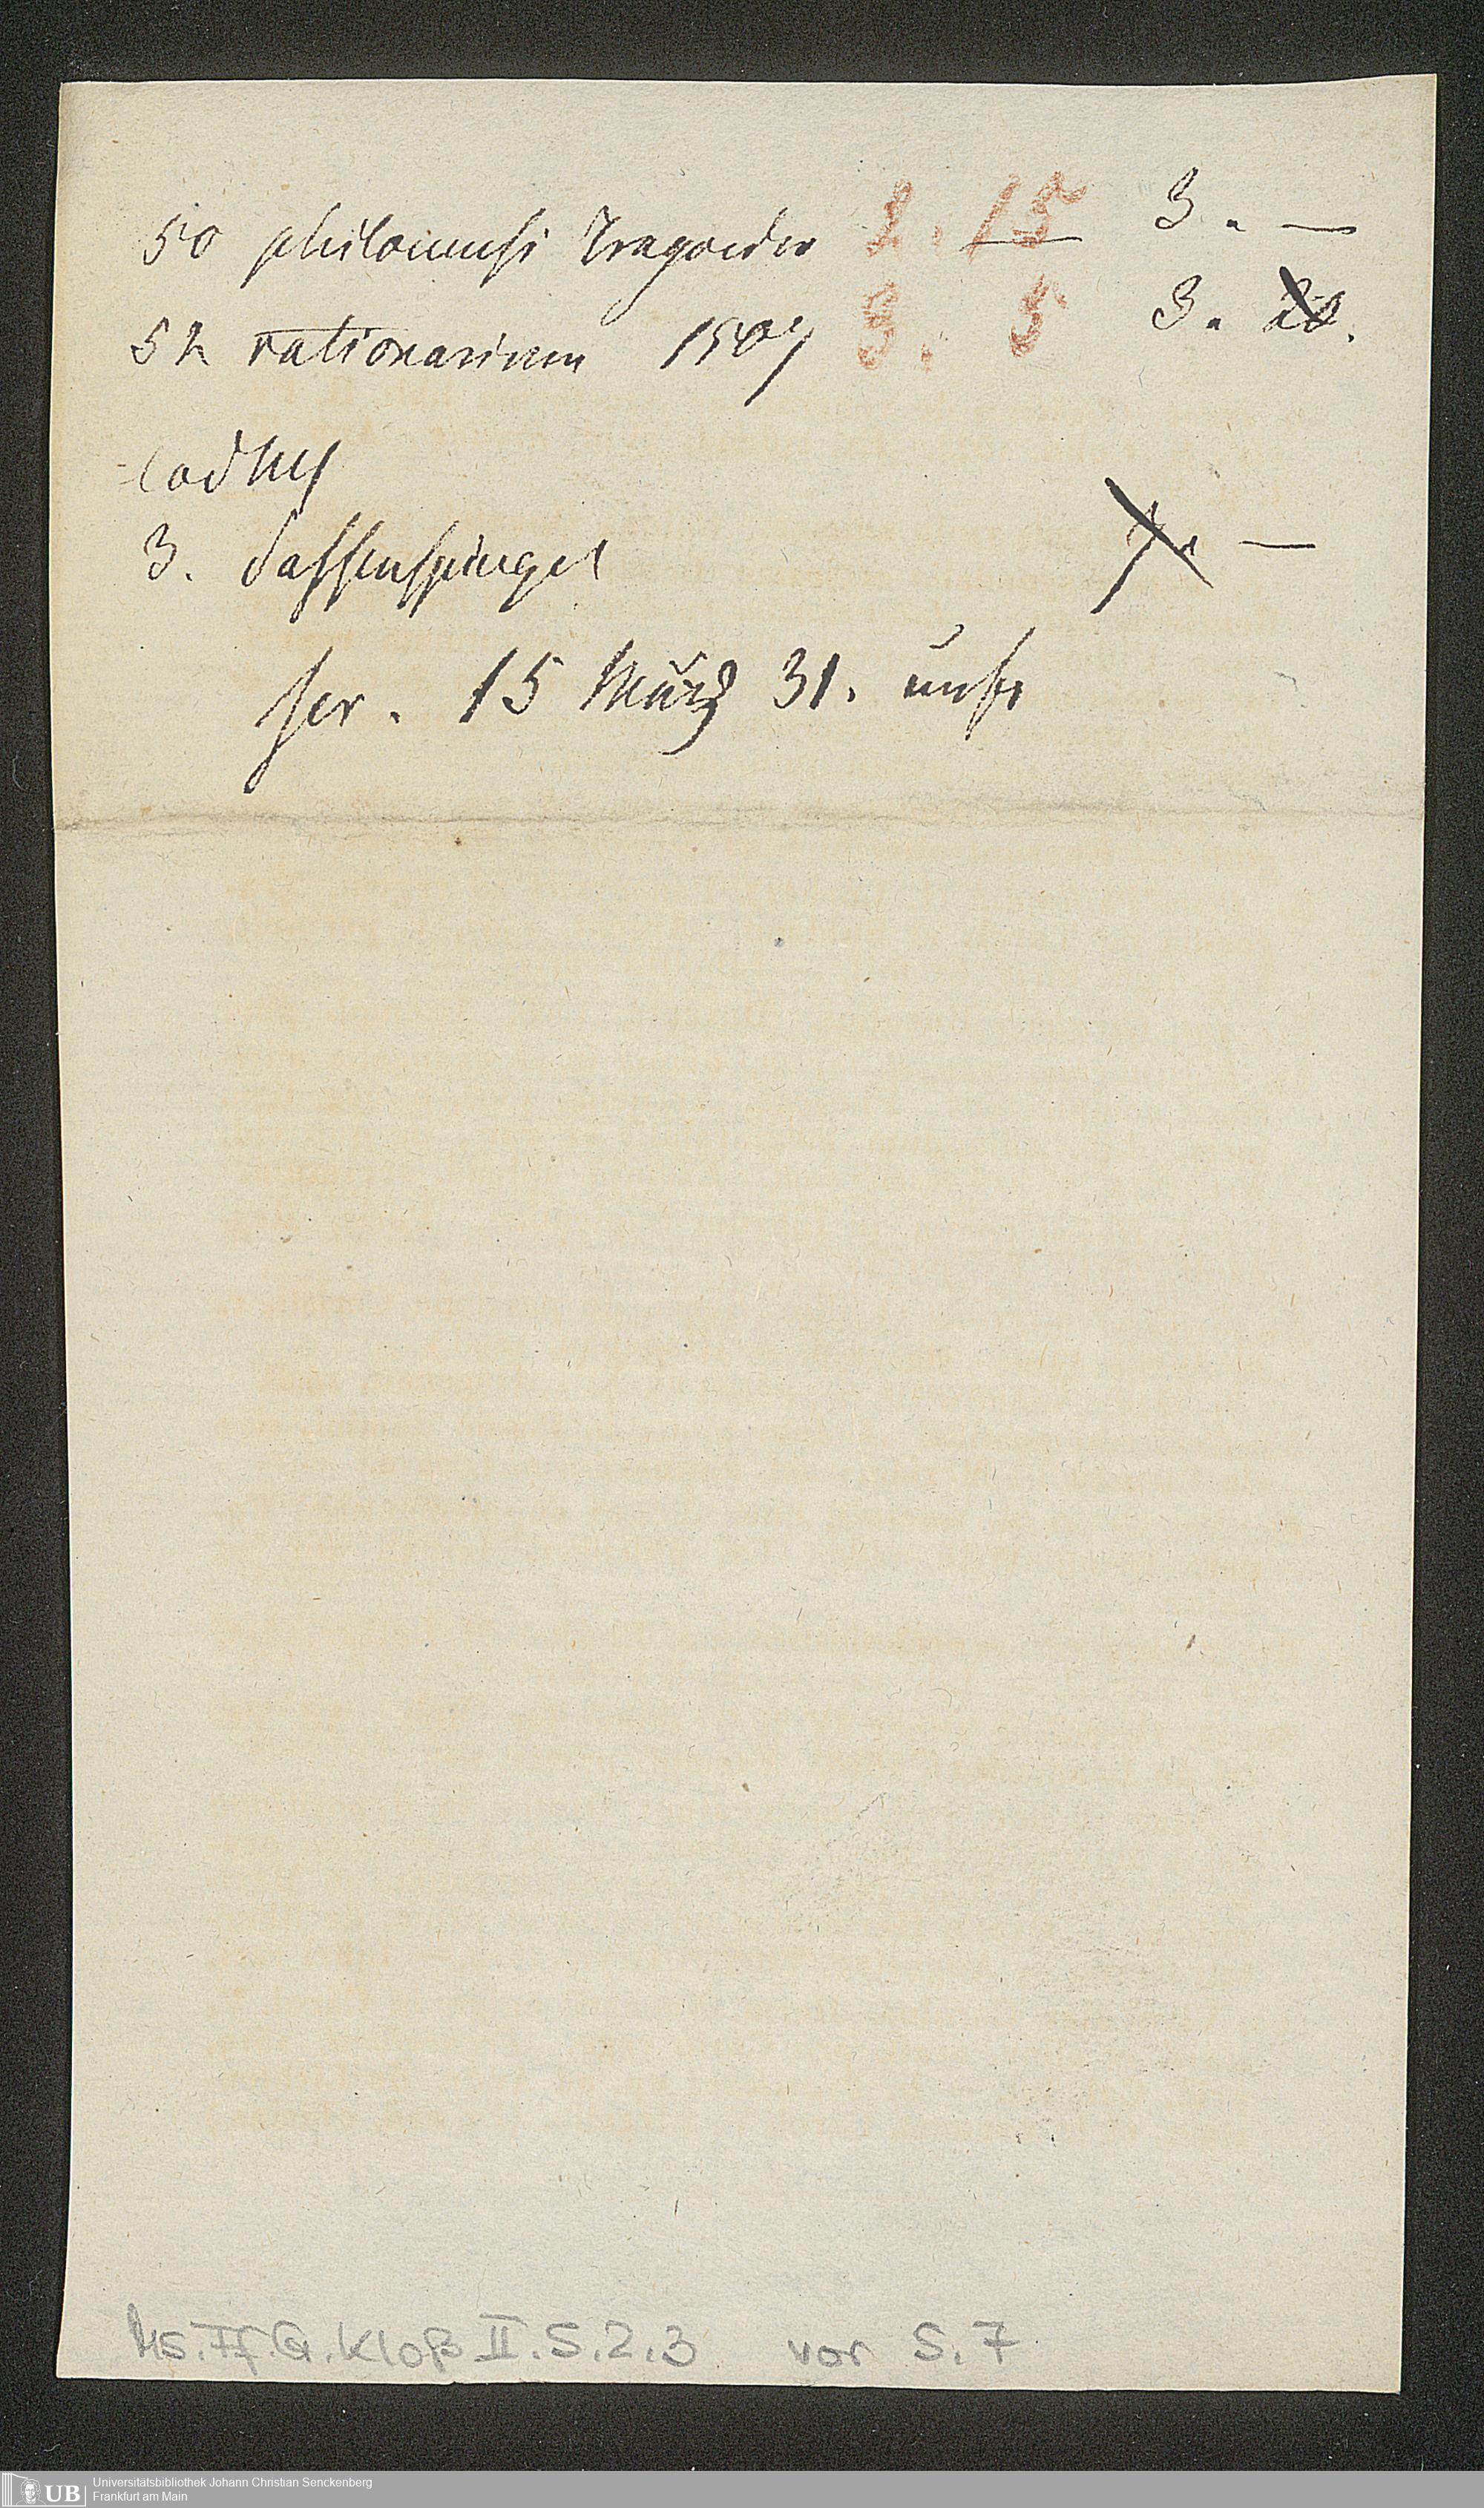 50 philomusi Tragoedia 2. 15 3. —
52 rationarium 1507 3. 5 3.
3. Sassenspiegel —
scr. 15 März 31.
Ms. Ff. G. Kloß II. S. 2. 3 vor S. 7
UB Universitätsbibliothek Johann Christian Senckenberg
Frankfurt am Main